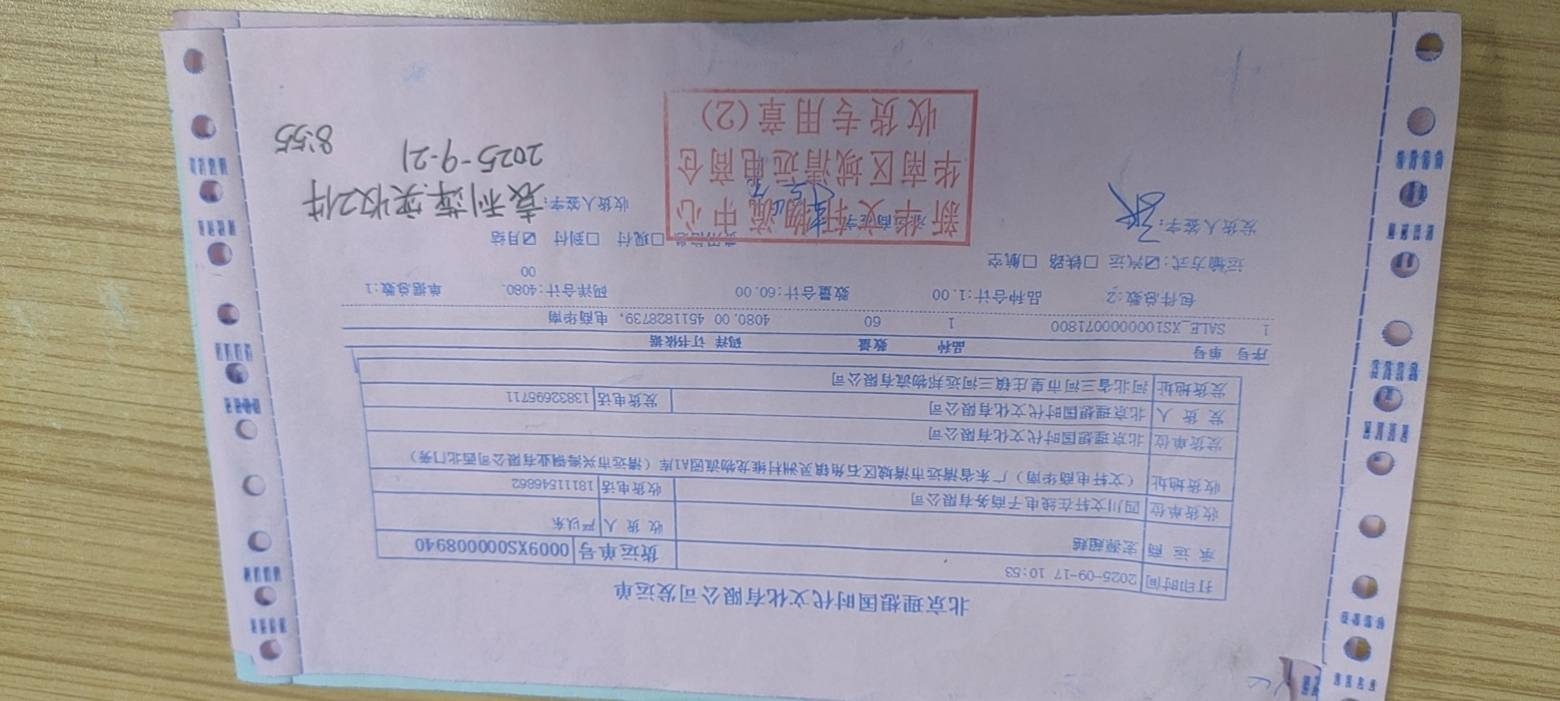 北京理想国时代文化有限公司发运单
打印时间 2025-09-17 10:53
承运商 宏源超越 货运单号 0009XS0000008940
收货人 严以东
收货单位 四川文轩在线电子商务有限公司 收货电话 18111546862
收货地址 (文轩电商华南)广东省清远市清城区石角镇灵洲村维龙物流园A1库(清远市兴湾铜业有限公司西北门旁)
发货单位 北京理想国时代文化有限公司
发货人 北京理想国时代文化有限公司 发货电话 13832695711
发货地址 河北省三河市皇庄镇三河远邦物流有限公司
序号 单号 品种 数量 码洋 订书依据
1 SALE_XS1000000071800 1 60 4080.00 4511828739, 电商华南
包件总数:2 品种合计:1.00 数量合计:60.00 码洋合计:4080.00 单据总数:1
运输方式:☑汽运 □铁路 □航空 □现付 □到付 ☑月结
发货人签字: 收货人签字: 袁利萍实收2件
2025-9-21 8:55
新华文轩物流中心
华南区域清远电商仓
收货专用章(2)